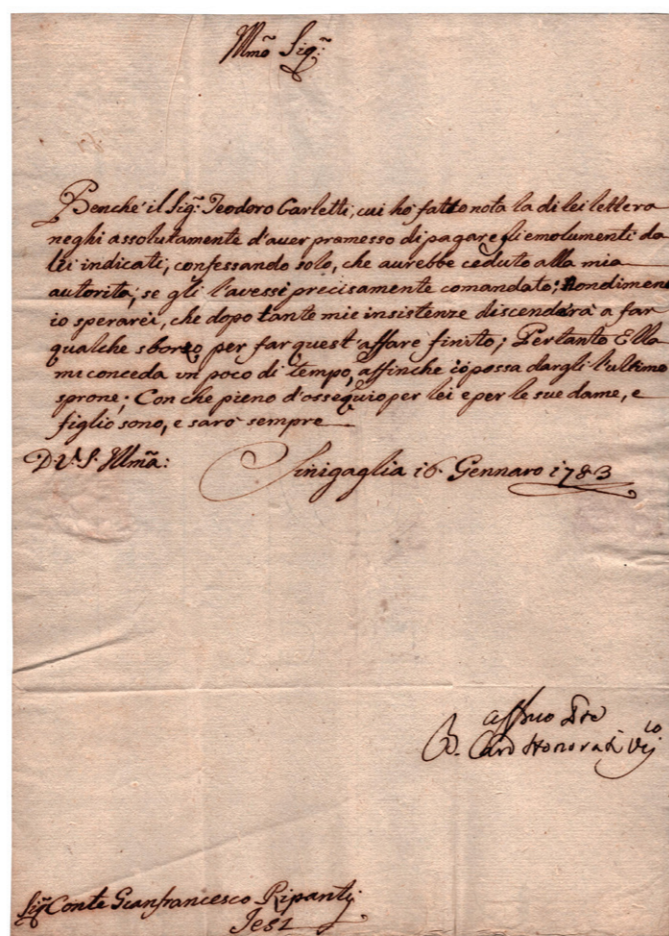 Illmo Sig:
Benchè il Sig: Teodoro Carletti, cui hò fatto nota la di lei lettera
neghi assolutamente d'aver promesso di pagare gli emolumenti da
lei indicati, confessando solo, che aurebbe ceduto alla mia
autorità, se gli l'avessi precisamente comandato; Nondimeno
io sperarei, che dopo tante mie insistenze discenderà a far
qualche sborzo per far quest'affare finito; Pertanto Ella
mi conceda un poco di tempo, affinche io possa dargli l'ultimo
sprone; Con che pieno d'ossequio per lei e per le sue dame, e
figlio sono, e sarò sempre
D.V.S. Illmã:
Sinigaglia 16. Gennaro 1783
B. Card Honorati
Sig: Conte Gianfrancesco Ripanti
Jesi